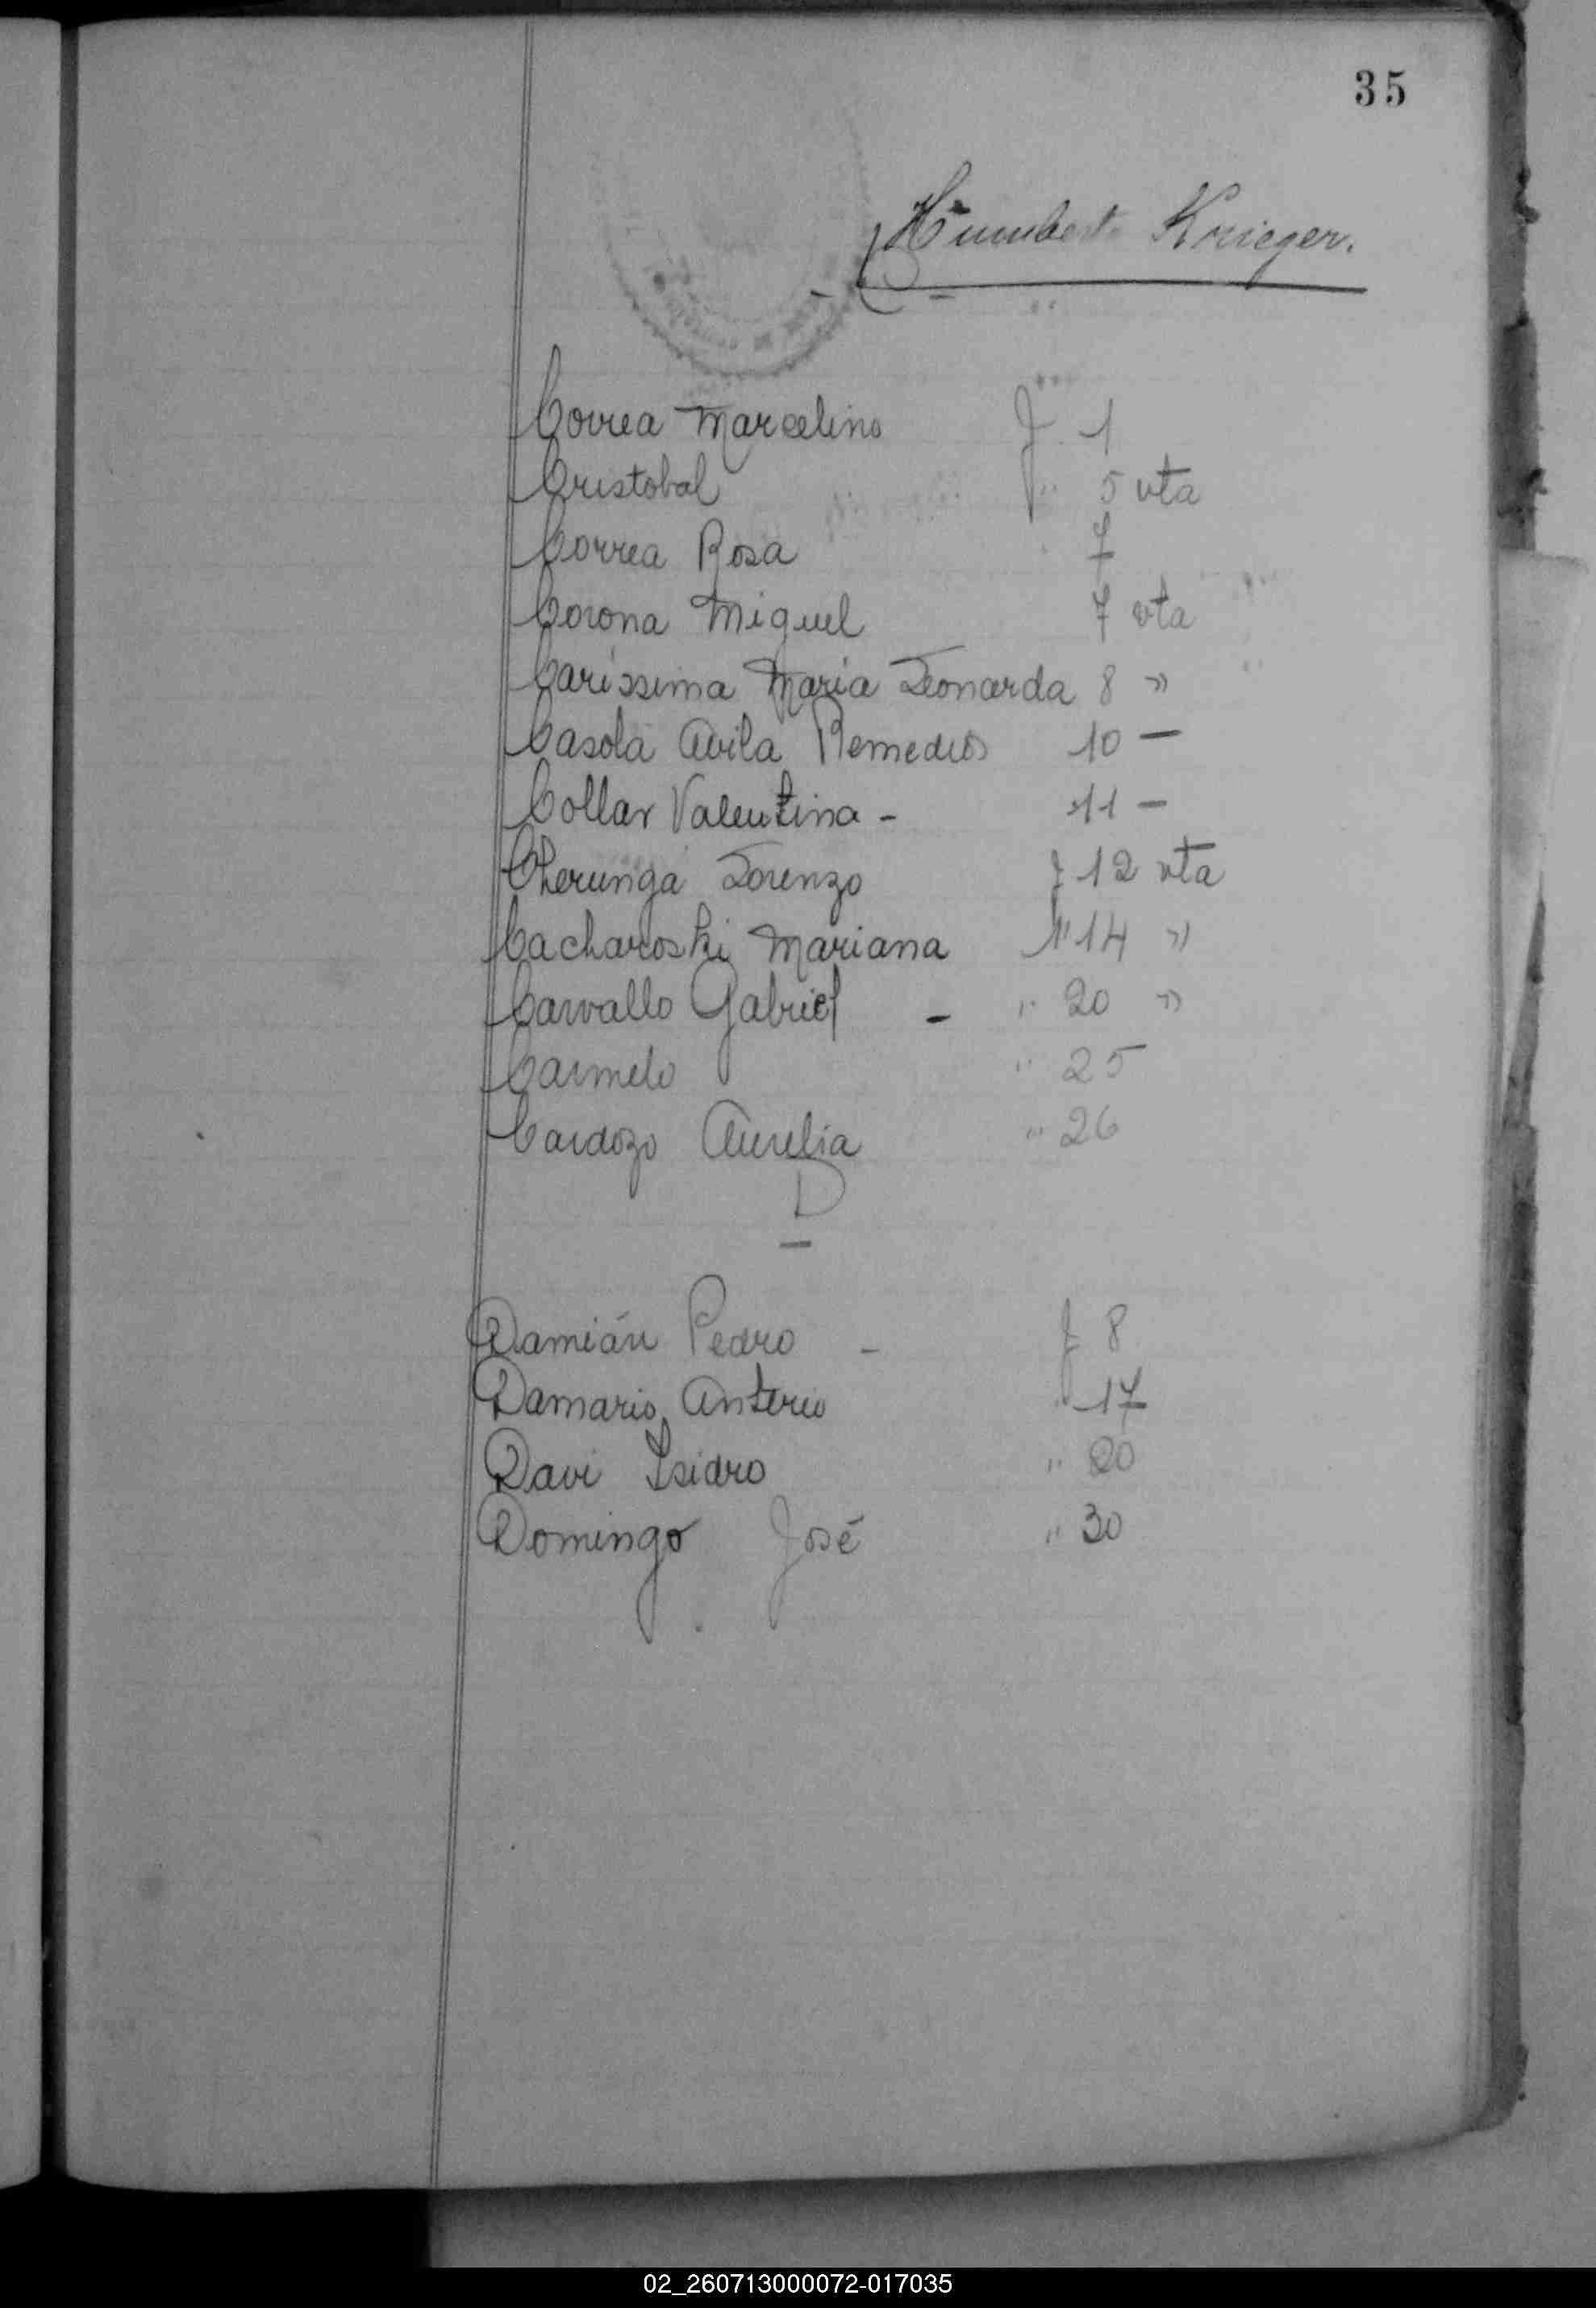 35
Humberto Krieger.
Correa Marcelino f 1
Cristobal " 5 vta
Correa Rosa 7
Corona Miguel 7 vta
Carissima Maria Leonarda 8 "
Casola Avila Remedios 10 —
Collar Valentina - 11 —
Cherunga Lorenzo f 12 vta
Cacharoski Mariana " 14 "
Carvallo Gabriel - " 20 "
Carmelo " 25
Cardozo Aurelia " 26
D
Damián Pedro - f 8
Damario Anterio " 17
Davi Isidro " 20
Domingo José " 30
02_260713000072-017035